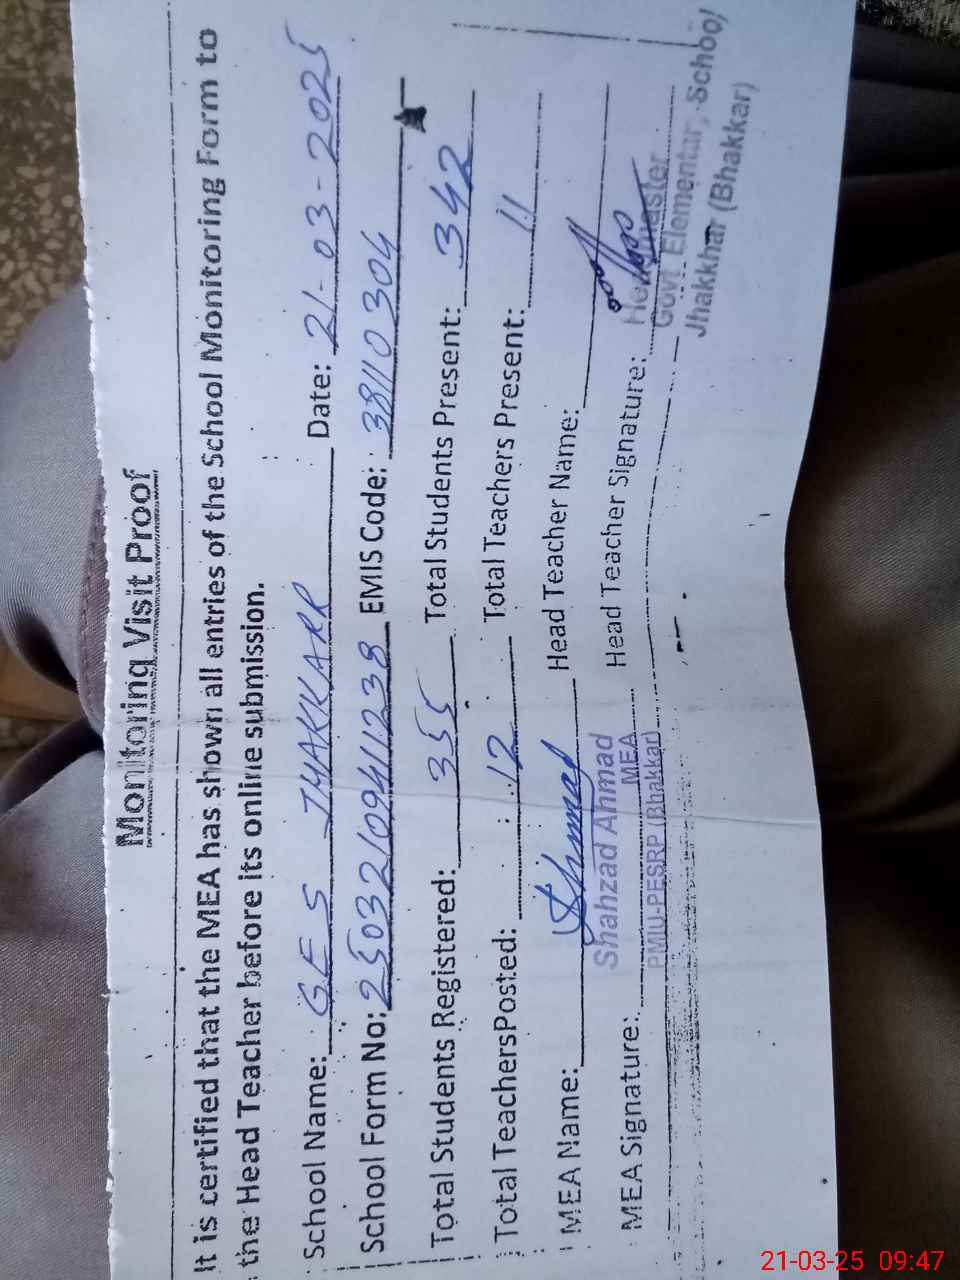 Monitoring Visit Proof
It is certified that the MEA has shown all entries of the School Monitoring Form to
the Head Teacher before its online submission.
School Name: GES JHAKKARR Date: 21-03-2025
School Form No: 25032109411238 EMIS Code: 38110304
Total Students Registered: 355 Total Students Present: 342
Total TeachersPosted: 12 Total Teachers Present: 11
MEA Name: Ahmad Head Teacher Name:
Shahzad Ahmad
MEA
MEA Signature: Head Teacher Signature:
PMIU-PESRP (Bhakkar)
Headmaster
Govt Elementary School
Jhakkhar (Bhakkar)
21-03-25 09:47